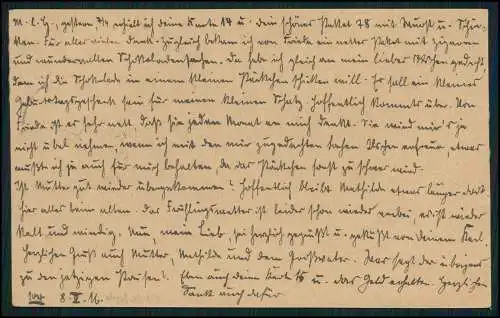 M. l. G., gestern 7/4 erhielt ich deine Karte 14 u. dein schönes Packet 78 mit Wurst u. Schin-
ken. Für alles vielen Dank. Zugleich bekam ich von Frieda ein nettes Paket mit Zigarren
und wundervollen Schokoladensachen. Da habe ich gleich an mein liebes gedacht,
dem ich die Schokolade in einem kleinen Päckchen schicken will. Es soll ein kleines
Geburtstagsgeschenk sein für meinen kleinen Schatz. Hoffentlich kommts über. Von
Frieda ist es sehr nett, dass sie jeden Monat an mich denkt. Sie wird mir's ja
nicht übel nehmen, wenn ich mit den mir zugedachten Sachen erfreue, etwas
musste ich ja auch für mich behalten, da das Päckchen sonst zu schwer wird.
Ist Mutter gut wieder übergekommen? Hoffentlich bleibt Mathilde etwas länger dort.
Hier alles beim alten. Das Frühlingswetter ist leider schon wieder vorbei, es ist wieder
kalt und windig. Nun, mein Lieb, sei herzlich gegrüßt u. geküßt von deinem Karl.
Herzlichen Gruß auch Mutter, Mathilde und dem Großvater. Was sagt der übrigens
zu den jetzigen Preisen? Eben auch deine Karte 15 u. das Geld erhalten. Herzlichen
8. IV. 16. Dank auch dafür